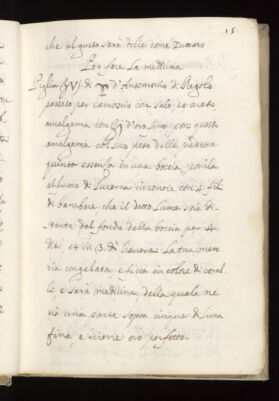 15
che al gusto sarà dolce come Zuccaro
Per fare La medicina
Piglia ʒvj di ☿ d'Antimonio di Regolo
passato per camoscio con sale et aceto
amalgama con ʒj d'oro fino con questo
amalgama col suo peso della nostra
quinta essenza in una boccia, ponila
al fuoco di Lucerna in cenere con 4. fili
di bambace che il detto Lume stia di-
stante dal fondo della boccia per 4.
diti et in 3. dì haverai La tua mate
ria congelata, e fissa in colore di coral
lo e sarà medicina, della quale ne
và una parte sopra cinque di Luna
fina e viene oro perfetto.